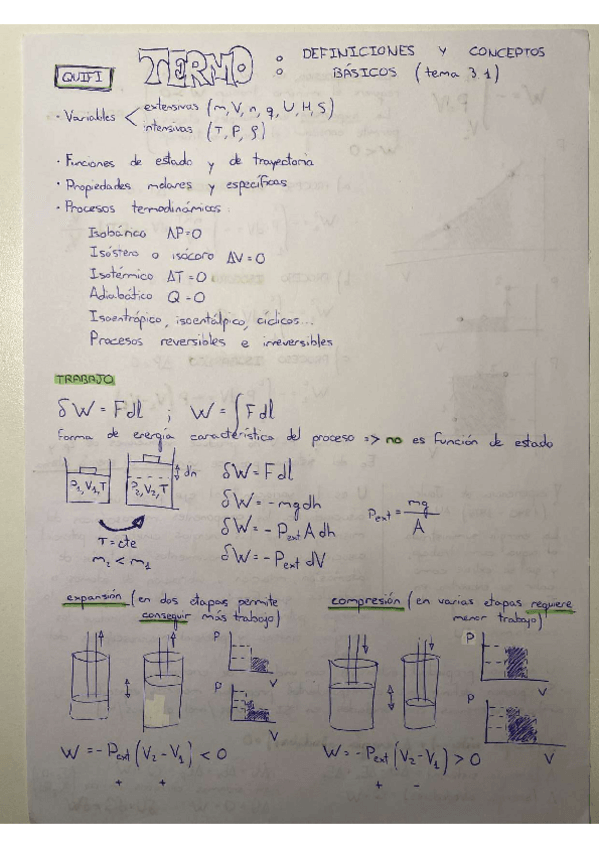 QUIFI TERMO : DEFINICIONES Y CONCEPTOS
BÁSICOS (tema 3.1)
· Variables < extensivas (m, V, n, q, U, H, S)
intensivas (T, P, ρ)
· Funciones de estado y de trayectoria
· Propiedades molares y específicas
· Procesos termodinámicos:
Isobárico ΔP=0
Isóstero o isócoro ΔV=0
Isotérmico ΔT=0
Adiabático Q=0
Isoentrópico, isoentálpico, cíclicos...
Procesos reversibles e irreversibles
TRABAJO
δW = Fdl ; W = ∫Fdl
forma de energía característica del proceso => no es función de estado
P₁,V₁,T P₂,V₂,T dh
T = cte
m₂ < m₁
δW = Fdl
δW = -mgdh
δW = -Pext A dh
δW = -Pext dV
Pext = mg/A
expansión (en dos etapas permite
conseguir más trabajo)
P
V
P
V
W = -Pext (V₂-V₁) < 0
+ +
compresión (en varias etapas requiere
menor trabajo)
P
V
P
V
W = -Pext (V₂-V₁) > 0
+ -